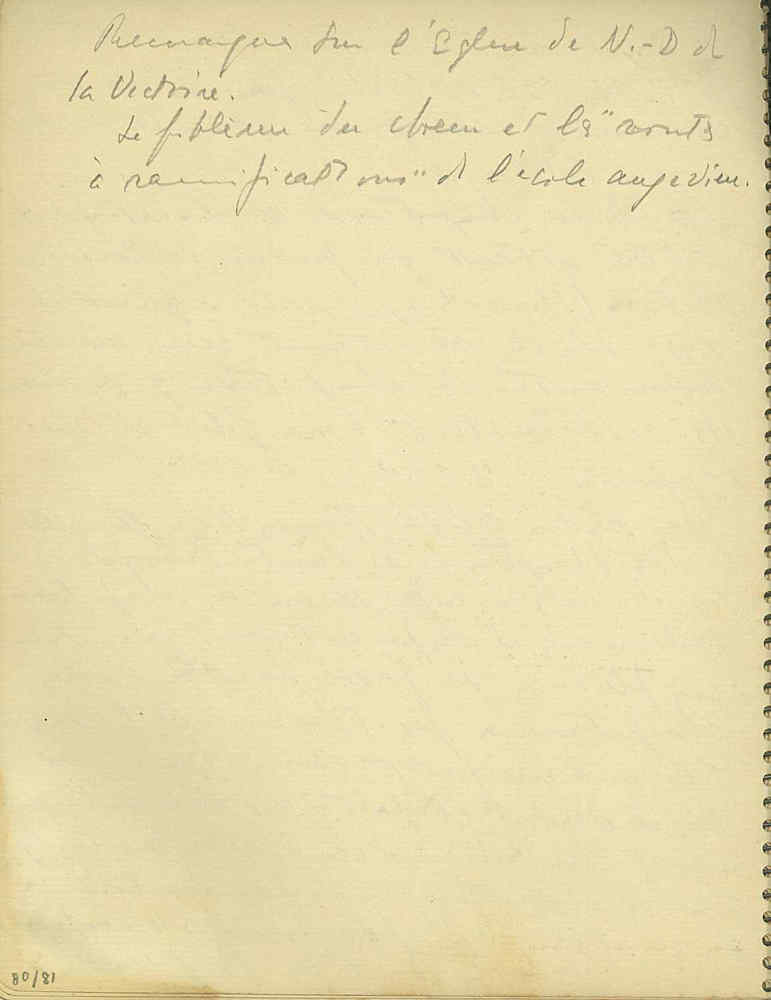 Remarques sur l'Eglise de N.-D de
la Victoire.
Le problème du choeur et la "voute
à ramifications" de l'école angevine.
80/81